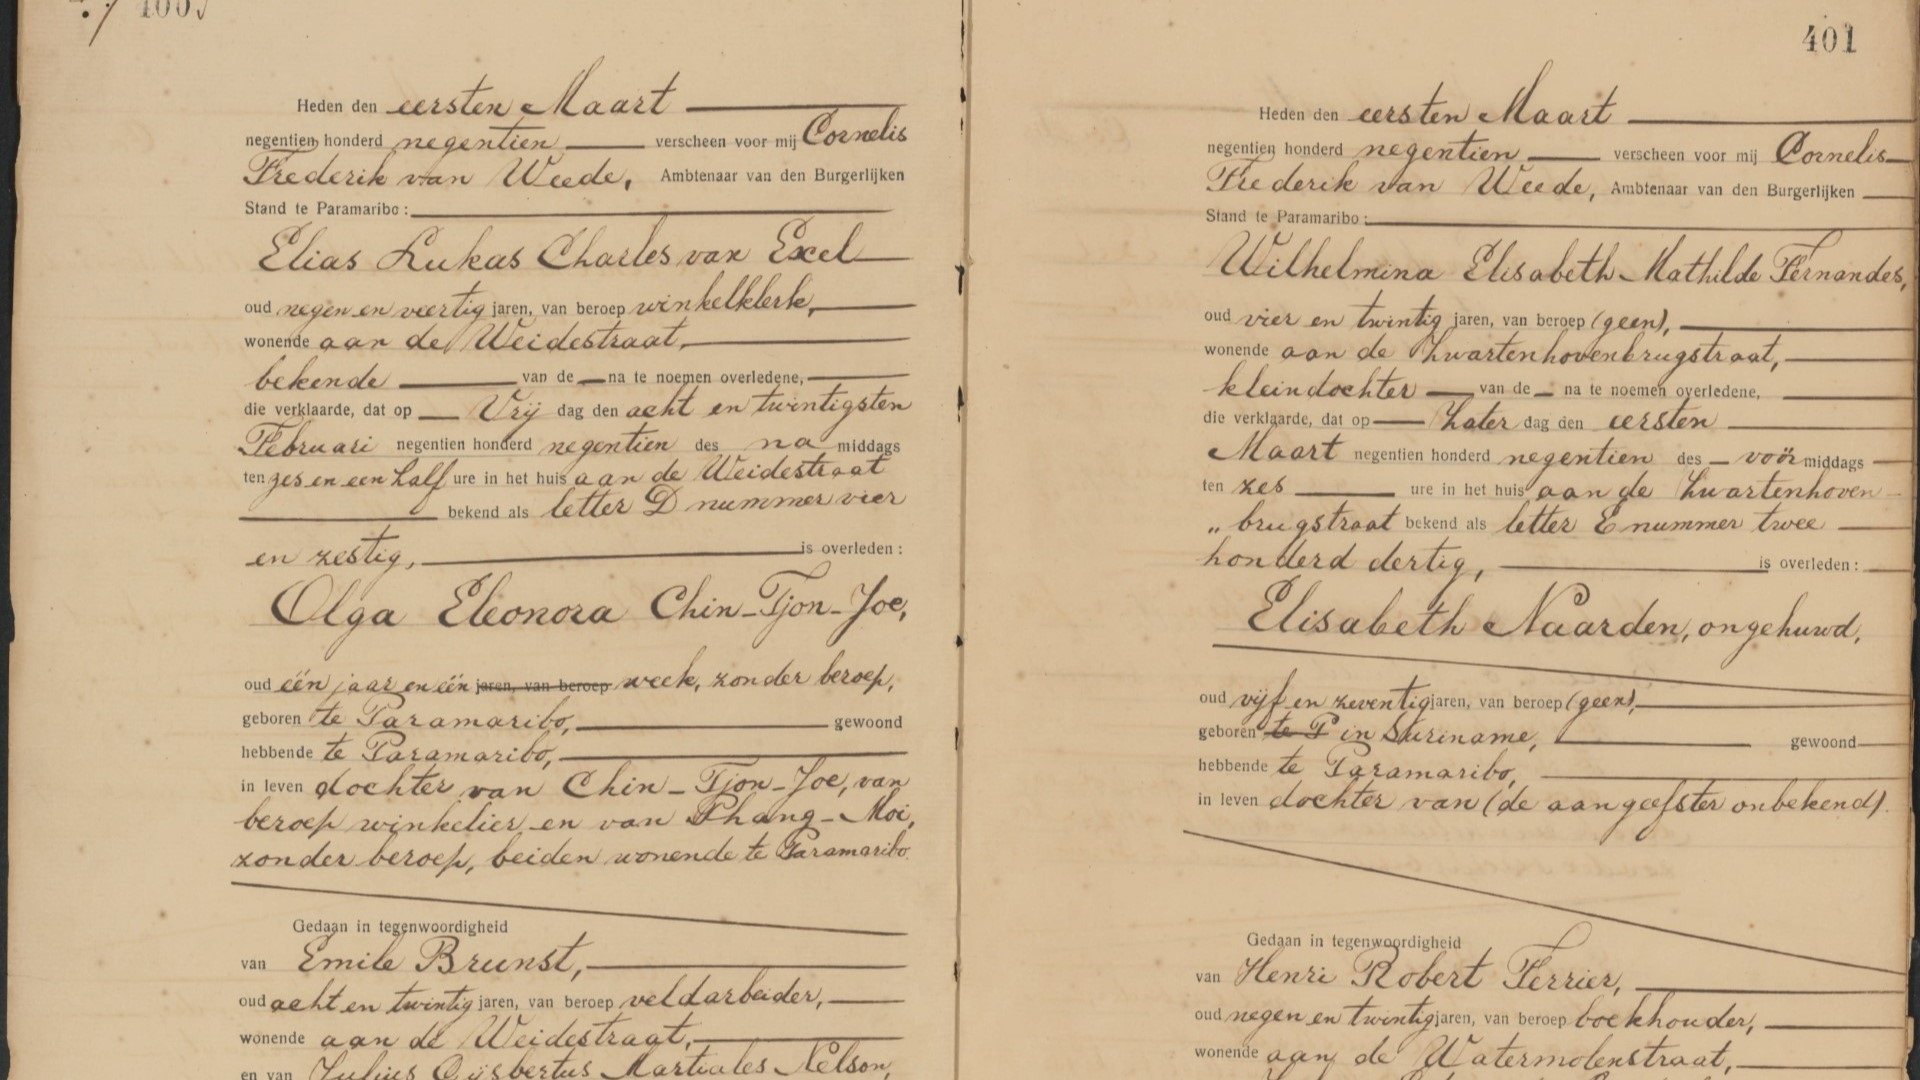 400
Heden den eersten Maart
negentien honderd negentien verscheen voor mij Cornelis
Frederik van Weede, Ambtenaar van den Burgerlijken
Stand te Paramaribo:
Elias Lukas Charles van Excel
oud negen en veertig jaren, van beroep winkelklerk,
wonende aan de Weidestraat,
bekende van de na te noemen overledene,
die verklaarde, dat op Vrij dag den acht en twintigsten
Februari negentien honderd negentien des na middags
ten zes en een half ure in het huis aan de Weidestraat
bekend als letter D nummer vier
en zestig, is overleden:
Olga Eleonora Chin-Tjon-Joe,
oud één jaar en één jaren, van beroep week, zonder beroep,
geboren te Paramaribo, gewoond
hebbende te Paramaribo,
in leven dochter van Chin-Tjon-Joe, van
beroep winkelier en van Phang-Moi,
zonder beroep, beiden wonende te Paramaribo
Gedaan in tegenwoordigheid
van Emile Brunst,
oud acht en twintig jaren, van beroep veldarbeider,
wonende aan de Weidestraat,
en van Julius Gijsbertus Martiales Nelson,
401
Heden den eersten Maart
negentien honderd negentien verscheen voor mij Cornelis
Frederik van Weede, Ambtenaar van den Burgerlijken
Stand te Paramaribo:
Wilhelmina Elisabeth Mathilde Fernandes,
oud vier en twintig jaren, van beroep (geen),
wonende aan de Zwartenhovenbrugstraat,
kleindochter van de na te noemen overledene,
die verklaarde, dat op Zater dag den eersten
Maart negentien honderd negentien des voor middags
ten zes ure in het huis aan de Zwartenhoven
„ brugstraat bekend als letter E nummer twee
honderd dertig, is overleden:
Elisabeth Naarden, ongehuwd,
oud vijf en zeventig jaren, van beroep (geen),
geboren te P in Suriname, gewoond
hebbende te Paramaribo,
in leven dochter van (de aangeefster onbekend).
Gedaan in tegenwoordigheid
van Henri Robert Ferrier,
oud negen en twintig jaren, van beroep boekhouder,
wonende aan de Watermolenstraat,